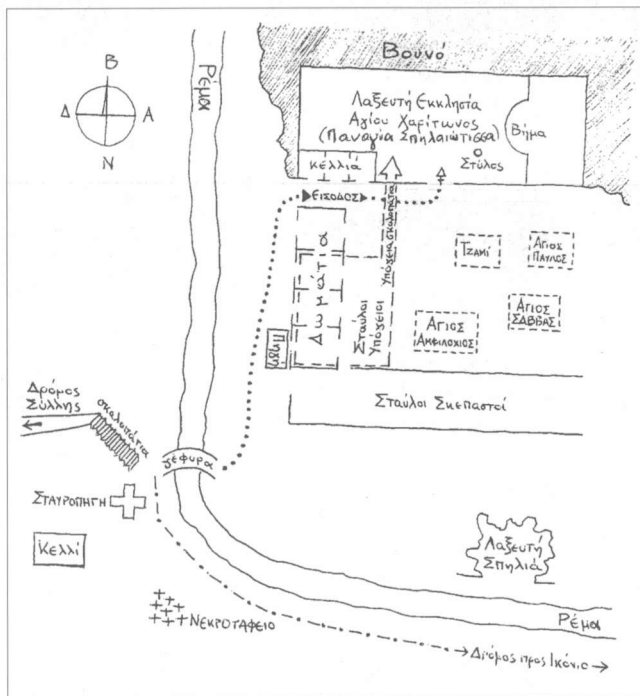 Βουνό
Β
Δ
Α
Ν
Ρέμα
Λαξευτή Εκκλησία
Αγίου Χαρίτωνος
(Παναγία Σπηλαιώτισσα)
Βήμα
Στύλος
Κελλιά
ΕΙΣΟΔΟΣ
Υπόγεια σκαλοπάτια
Δωμάτια
Σταύλοι
Υπόγειοι
Πηγή
ΤΖΑΜΙ
ΑΓΙΟΣ
ΠΑΥΛΟΣ
ΑΓΙΟΣ
ΣΑΒΒΑΣ
ΑΓΙΟΣ
ΑΜΦΙΛΟΧΙΟΣ
Σταύλοι Σκεπαστοί
Δρόμος
Σύλλης
σκαλοπάτια
γέφυρα
ΣΤΑΥΡΟΠΗΓΗ
Κελλί
ΝΕΚΡΟΤΑΦΕΙΟ
Λαξευτή
Σπηλιά
Ρέμα
Δρόμος προς Ικόνιο